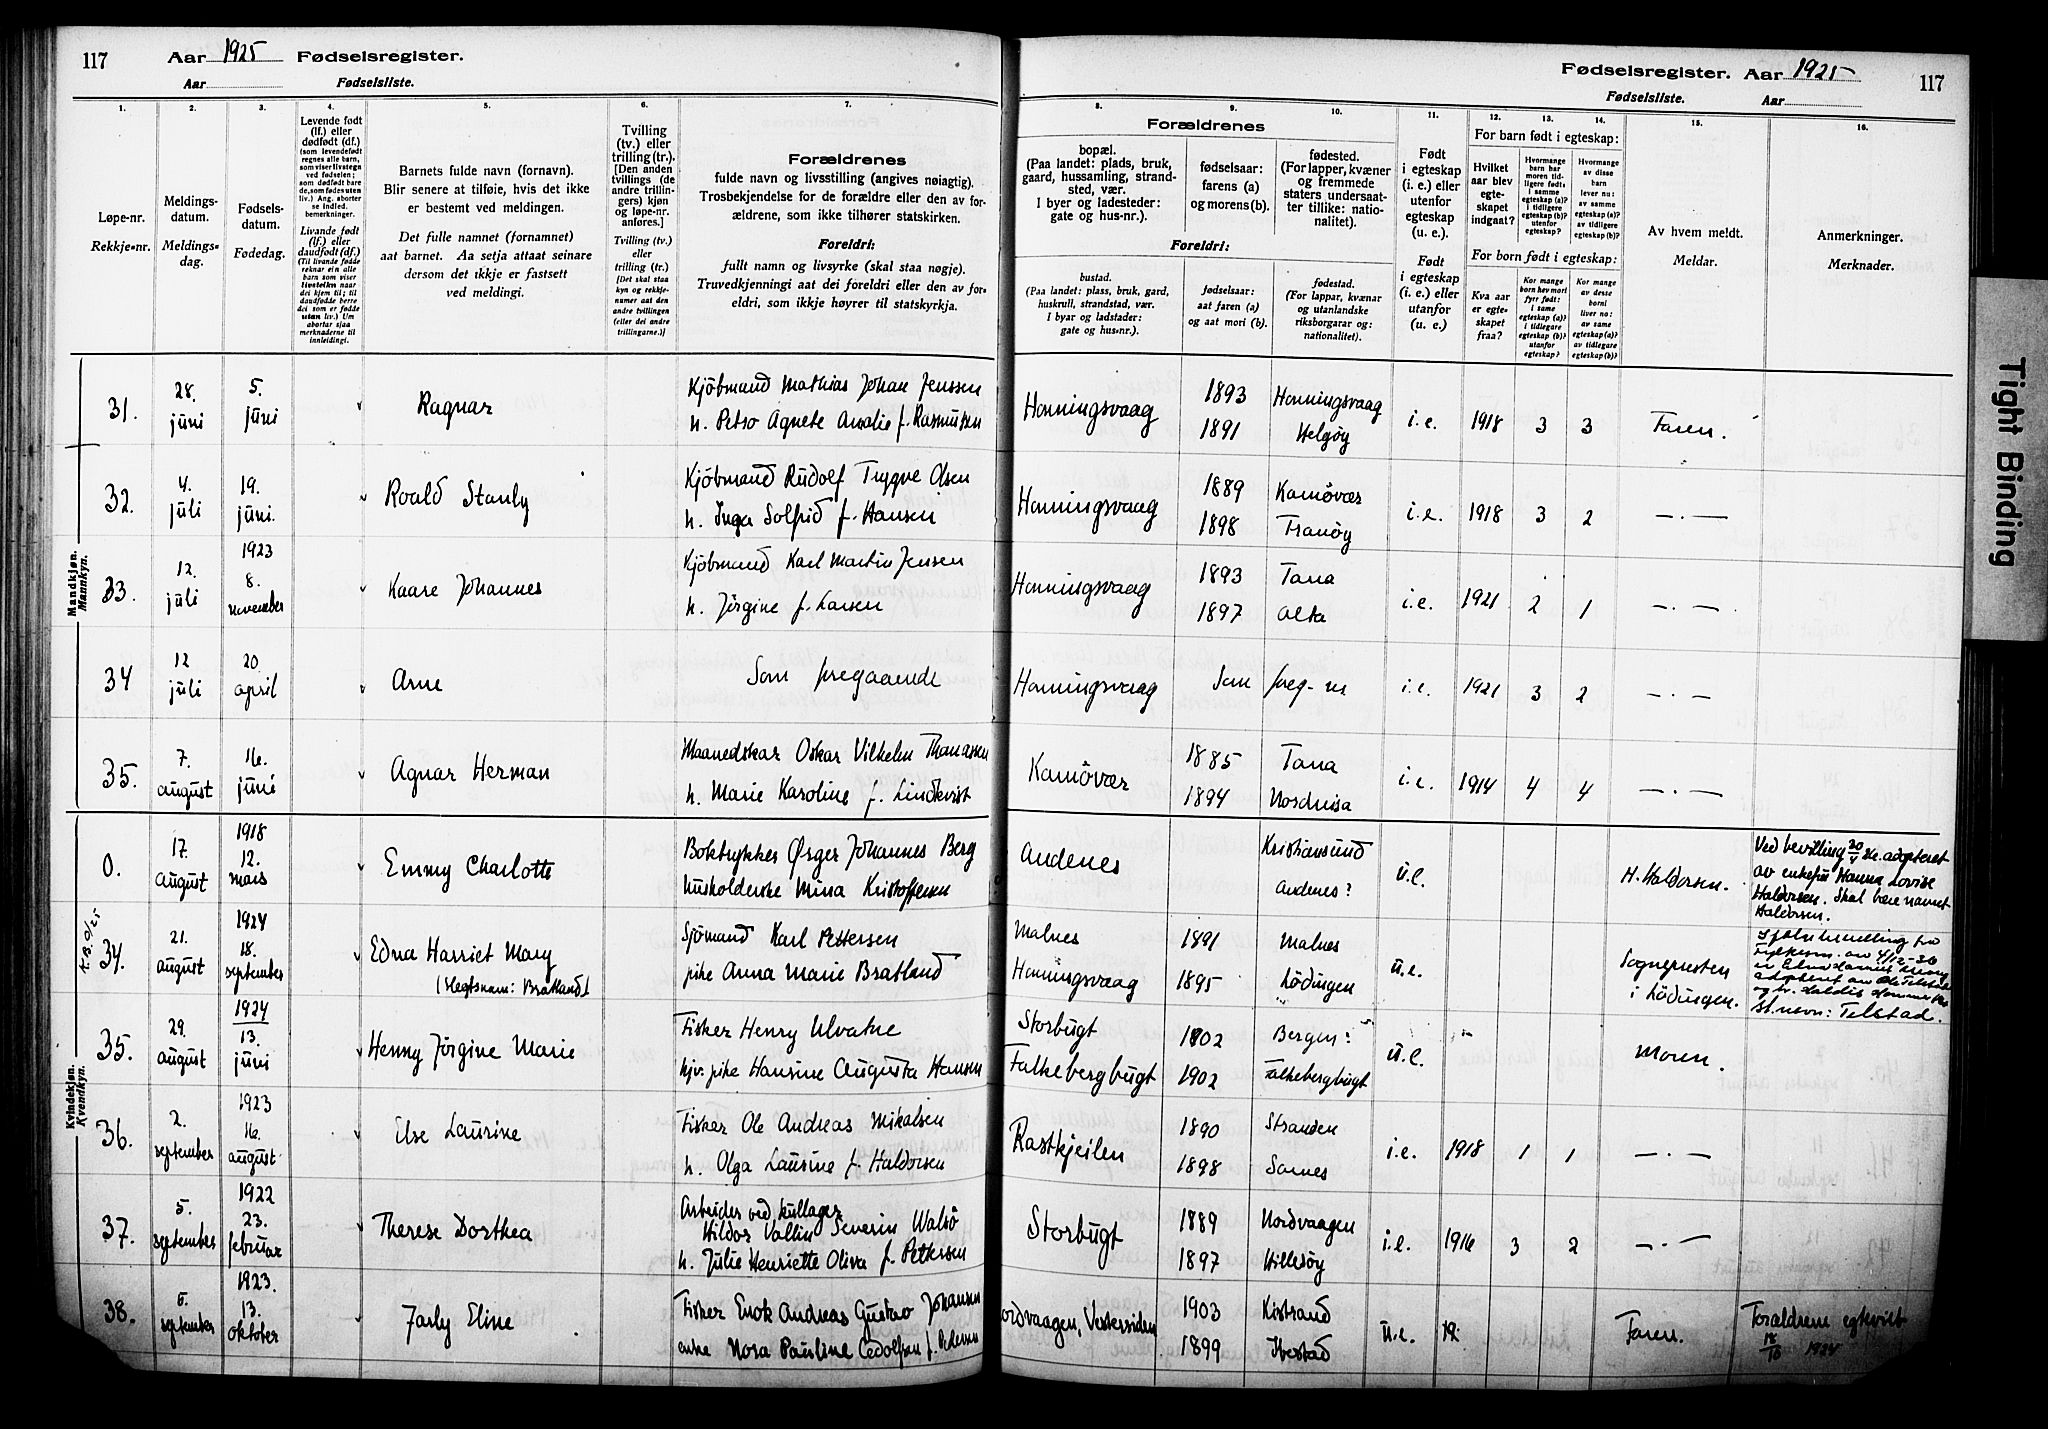 117 Aar 1925 Fødselsregister.
Aar Fødselsliste.
Fødselsregister. Aar 1925 117
Fødselsliste. Aar
1. 2. 3. 4. 5. 6. 7. 8. 9. 10. 11. 12. 13. 14. 15. 16.
Løpe-nr.
Rekkje-nr.
Meldings-
datum.
Meldings-
dag.
Fødsels-
datum.
Fødedag.
Levende født
(lf.) eller
dødfødt (df.)
(som levendefødt
regnes alle barn,
som viser livstegn
ved fødselen;
som dødfødt bare
de, som fødes uten
liv.) Ang. aborter
se indled.
bemerkninger.
Livande født
(lf.) eller
daudfødt (df.)
(Til livande fødde
reknar ein alle
barn som viser
livsteikn naar
dei kjem til; til
daudfødde berre
dei som er fødde
utan liv.) Um
abortar sjaa
merknaderne til
innleidingi.
Barnets fulde navn (fornavn).
Blir senere at tilføie, hvis det ikke
er bestemt ved meldingen.
Det fulle namnet (fornamnet)
aat barnet. Aa setja attaat seinare
dersom det ikkje er fastsett
ved meldingi.
Tvilling
(tv.) eller
trilling (tr.).
[Den anden
tvillings (de
andre trillin-
gers) kjøn
og løpe-nr.
anføres.]
Tvilling (tv.)
eller
trilling (tr.)
[Det skal staa
kyn og rekkje-
numer aat den
andre tvillingen
(eller dei andre
trillingarne.)]
Forældrenes
fulde navn og livsstilling (angives nøiagtig).
Trosbekjendelse for de forældre eller den av for-
ældrene, som ikke tilhører statskirken.
Foreldri:
fullt namn og livsyrke (skal staa nøgje).
Truvedkjenningi aat dei foreldri eller den av for-
eldri, som ikkje høyrer til statskyrkja.
Forældrenes
bopæl.
(Paa landet: plads, bruk,
gaard, hussamling, strand-
sted, vær.
I byer og ladesteder:
gate og hus-nr.).
fødselsaar:
farens (a)
og morens (b).
fødested.
(For lapper, kvæner
og fremmede
staters undersaat-
ter tillike: natio-
nalitet).
Foreldri:
bustad.
(Paa landet: plass, bruk, gard,
huskrull, strandstad, vær.
I byar og ladstader:
gate og hus-nr.).
fødselsaar:
aat faren (a)
og aat mori (b).
fødestad.
(For lappar, kvænar
og utanlandske
riksborgarar og:
nationalitet).
Født
i egteskap
(i. e.) eller
utenfor
egteskap
(u. e.).
Født
i egteskap
(i. e.) eller
utanfor
(u. e.).
For barn født i egteskap:
Hvilket
aar blev
egte-
skapet
indgaat?
Hvormange
barn har
moren tid-
ligere født:
i samme
egteskap (a)?
i tidligere
egteskap (b)?
utenfor
egteskap?
Hvormange
av disse
barn
lever nu:
av samme
egteskap (a)?
av tidligere
egteskap (b)?
For born født i egteskap:
Kva aar
er egte-
skapet
fraa?
Kor mange
born hev mori
fyrr født:
i same
egteskap (a)?
i tidlegare
egteskap (b)?
utanfor
egteskap?
Kor mange
av desse
borni
liver no:
av same
egteskap (a)?
av tidlegare
egteskap (b)?
Av hvem meldt.
Meldar.
Anmerkninger.
Merknader.
Mandkjøn.
Mannkyn.
31. 28. juni 5. juni Ragnar Kjöbmand Mathias Johan Jenssen
h. Petso Agnete Amalie f. Rasmussen Honningsvaag 1893 1891 Honningsvaag Helgöy i.e. 1918 3 3 Faren.
32. 4. juli 19. juni. Roald Stanly Kjöbmand Rudolf Trygve Olsen
h. Inga Solfrid f. Hansen Honningsvaag 1889 1898 Kamövær Tranöy i.e. 1918 3 2 —·—
33. 12. juli 1923 8. november Kaare Johannes Kjöbmand Karl Martin Jensen
h. Jörgine f. Larsen Honningsvaag 1893 1897 Tana Alta i.e. 1921 2 1 —·—
34 12 juli 20 april Arne Som foregaaende Honningsvaag Som foreg-ne i.e. 1921 3 2 —·—
35. 7. august 16. juni Agnar Herman Maanedskar Oskar Vilhelm Thomassen
h. Marie Karoline f. Lindkvist Kamövær 1885 1894 Tana Nordreisa i.e. 1914 4 4 —·—
Kvindekjøn.
Kvendkyn.
0. 17. august 1918 12. mars Emmy Charlotte Boktrykker Ørger Johannes Berg
husholderske Mina Kristoffersen Andenes Kristiansund Andenes? u.e. H. Haldorsen. Ved bevilling 20/4 26. adopteret
av enkefru Hanna Lovise
Haldorsen. Skal bære navnet
Haldorsen.
K.B. 0/25
34. 21. august 1924 18. september Edna Harriet Mary
(slegtsnavn: Bratland) Sjömand Karl Pettersen
pike Anna Marie Bratland Malnes Honningsvaag 1891 1895 Malnes Lödingen u.e. Sognepresten
i Lödingen. av 4/12-36
er Edna Harriet Mary
adoptert av
St.navn: Telstad.
35. 29. august 1924 13. juni Henny Jörgine Marie Fisker Henry Ulvatne
hjv. pike Hansine Augusta Hansen Storbugt Falkebergbugt 1902 1902 Bergen? Falkebergbugt u.e. Moren.
36. 2. september 1923 16. august Else Laurine Fisker Ole Andreas Mikalsen
h. Olga Laurine f. Haldorsen Rastkjeilen 1890 1898 Stranden Sarnes i.e. 1918 1 1 —·—
37. 5. september 1922 23. februar Therese Dorthea Arbeider ved kullager
Hildor Vallin Severin Walsö
h. Julie Henriette Oliva f. Pettersen Storbugt 1889 1897 Nordvaagen Hillesöy i.e. 1916 3 2 —·—
38. 5. september 1923. 13. oktober Jarly Eline Fisker Enok Andreas Gustav Johansen
enke Nora Pauline Cedolfsen f. Pedersen Nordvaagen, Vestersiden 1903 1899 Kistrand Ibestad u.e. Faren. Forældrene egteviet
18/10 1924
Tight Binding